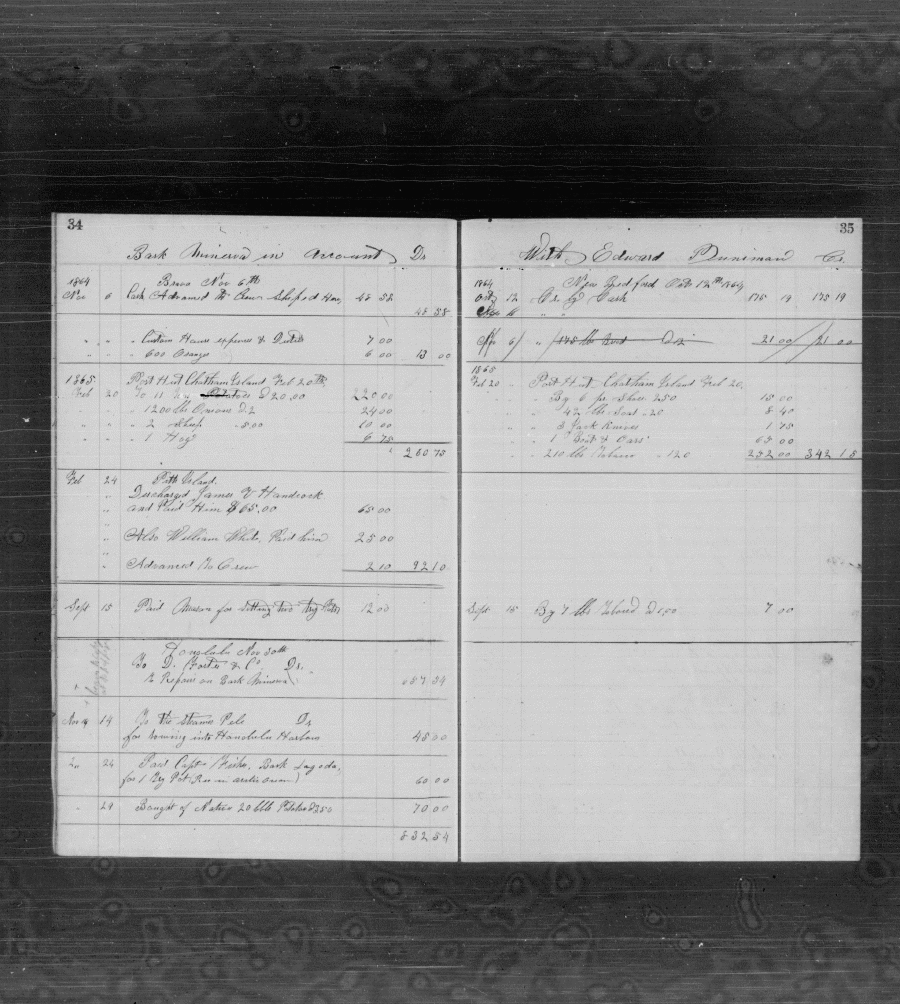 34
Bark Minerva in Account Dr
1864 Brava Nov 6th
Nov 6 Cash Advanced to Crew Shiped Here 48 58
48 58
" " " Custom House expenses & Duties 7 00
" " " 600 Oranges 6 00 13 00
1865 Port Hut Chatham Island Feb 20th
Feb 20 To 11 Potatoes @ 20.00 220 00
" " " 1200 lbs Onions @ 2 24 00
" " " 2 Sheep 5.00 10 00
" " " 1 Hog 6 75
" 260 75
Feb 24 Pitt Island
" Discharged James Handcock
" and Paid Him $65.00 65 00
" Also William White, Paid him 25 00
" Advanced to Crew 2 10 92 10
Sept 15 Paid Mason for setting two try Pots 12 00
Honolulu Nov 30th
To D. Foster & Co Dr.
To Repairs on Bark Minerva 657 54
Nov 14 To the steamer Pele Dr
for towing into Honolulu Harbor 45 00
" 24 Paid Capt Fish, Bark Lagoda,
for 1 Try Pot (Rec in arctic ocean) 60 00
" 29 Bought of Native 20 bbls Potatoes @ 3.50 70 00
832 54
35
With Edward Penniman Cr.
1864 New Bedford Oct 12th 1864
Oct 12 Cr By Cash 175 19 175 19
Nov 6 " 21 00 21 00
1865
Feb 20 " Port Hut Chatham Island Feb 20,
" " By 6 pr Shoes 2.50 15 00
" " 42 lbs Soap .20 8 40
" " 3 Jack Knives 1 75
" " 1 Boat & Oars 65 00
" " 210 lbs Tobacco 1.20 252 00 342 15
Sept 15 By 7 lbs Tobacco @ 1.00 7 00